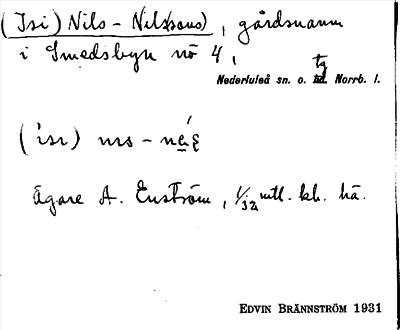 (Isi) Nils - Nilssons), gårdsnamn
i Smedsbyn nò 4,
Nederluleå sn. o. tg Norrb. l.
(isi)
Ägare A. Enström, 1/32 mtl. kb. hä.
EDVIN BRÄNNSTRÖM 1931